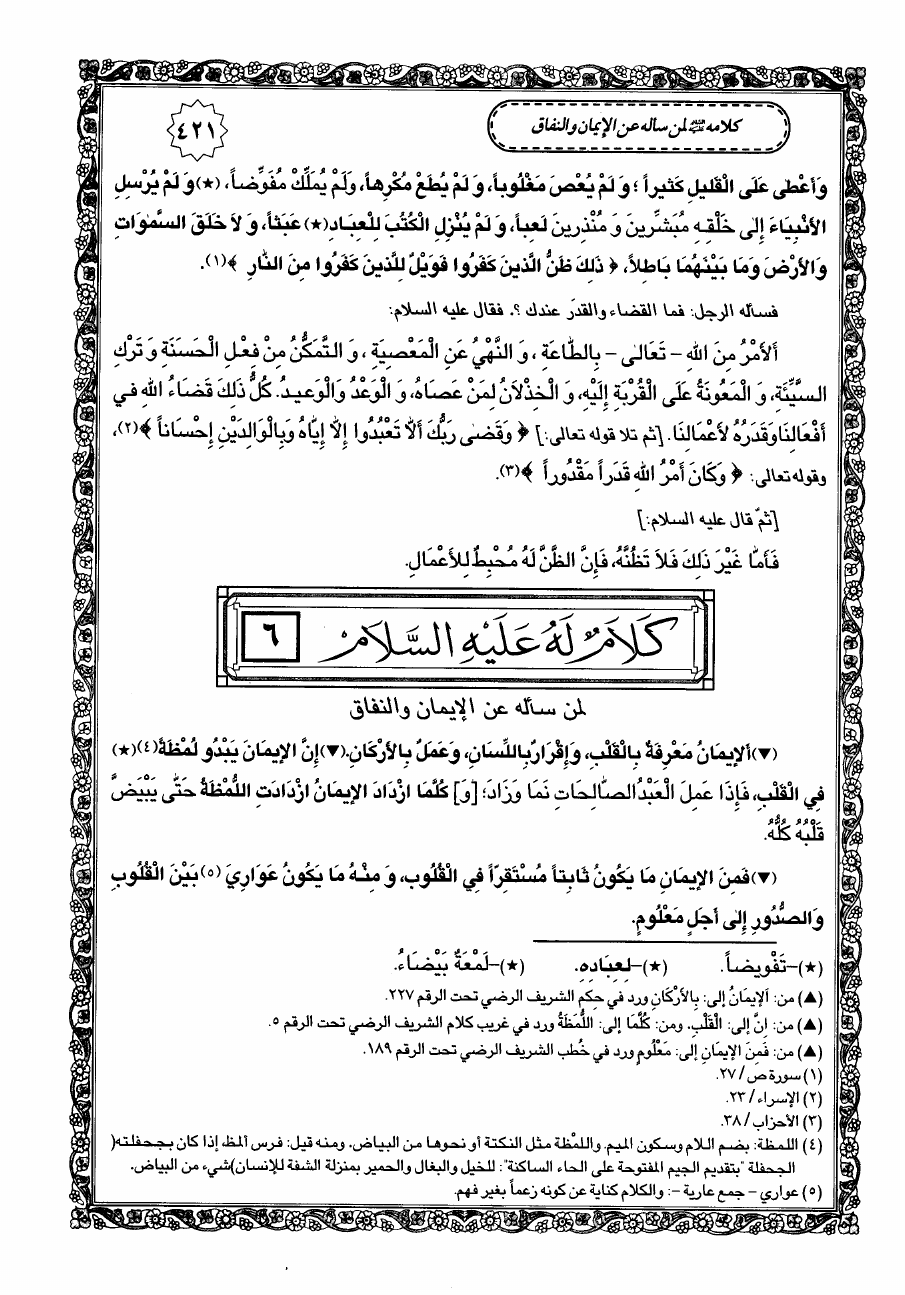 كلامه عليه السلام لمن سأله عن الإيمان والنفاق
٤٢١
وَأَعْطى عَلَى الْقَليلِ كَثيراً ؛ وَ لَمْ يُعْصَ مَغْلُوباً، وَ لَمْ يُطَعْ مُكْرِهاً، وَلَمْ يُمَلِّكْ مُفَوِّضاً، (★) وَ لَمْ يُرْسِلِ
الأَنْبِيَاءَ إِلى خَلْقِهِ مُبَشِّرينَ وَ مُنْذِرينَ لَعِباً، وَ لَمْ يُنْزِلِ الْكُتُبَ لِلْعِبَادِ(★) عَبَثاً، وَ لاَ خَلَقَ السَّموَاتِ
وَالأَرْضَ وَمَا بَيْنَهُمَا بَاطِلاً، ﴿ ذلِكَ ظَنُّ الَّذينَ كَفَرُوا فَوَيْلٌ لِلَّذينَ كَفَرُوا مِنَ النَّارِ ﴾(١).
فسأله الرجل: فما القضاء والقدَر عندك ؟. فقال عليه السلام:
أَلأَمْرُ مِنَ اللهِ – تَعَالى – بِالطَّاعَةِ ، وَ النَّهْيُ عَنِ الْمَعْصِيَةِ ، وَ التَّمَكُّنُ مِنْ فِعْلِ الْحَسَنَةِ وَ تَرْكِ
السَّيِّئَةِ، وَ الْمَعُونَةُ عَلَى الْقُرْبَةِ إِلَيْهِ، وَ الْخِذْلاَنُ لِمَنْ عَصَاهُ، وَ الْوَعْدُ وَالْوَعيدُ. كُلُّ ذلِكَ قَضَاءُ اللهِ في
أَفْعَالِنَا وَقَدَرُهُ لأَعْمَالِنَا. [ثم تلا قوله تعالى:] ﴿ وَقَضى رَبُّكَ أَلاَّ تَعْبُدُوا إِلاَّ إِيَّاهُ وَبِالْوَالِدَيْنِ إِحْسَاناً ﴾(٢)،
وقوله تعالى: ﴿ وَكَانَ أَمْرُ اللهِ قَدَراً مَقْدُوراً ﴾(٣).
[ثمّ قال عليه السلام:]
فَأَمَّا غَيْرَ ذلِكَ فَلاَ تَظُنَّهُ، فَإِنَّ الظَّنَّ لَهُ مُحْبِطٌ لِلأَعْمَالِ.
كَلَامٌ لَهُ عَلَيْهِ السَّلَام
٦
لمن سأله عن الإيمان والنفاق
(▼)أَلإيمَانُ مَعْرِفَةٌ بِالْقَلْبِ، وَإِقْرَارٌ بِاللِّسَانِ، وَعَمَلٌ بِالأَرْكَانِ.(▼) إِنَّ الإيمَانَ يَبْدُو لُمْظَةً(٤)(★)
فِي الْقَلْبِ، فَإِذَا عَمِلَ الْعَبْدُ الصَّالِحَاتِ نَمَا وَزَادَ؛ [وَ] كُلَّمَا ازْدَادَ الإيمَانُ ازْدَادَتِ اللُّمْظَةُ حَتّى يَبْيَضَّ
قَلْبُهُ كُلُّهُ.
(▼)فَمِنَ الإيمَانِ مَا يَكُونُ ثَابِتاً مُسْتَقِرّاً فِي الْقُلُوبِ، وَ مِنْهُ مَا يَكُونُ عَوَارِيَ (٥) بَيْنَ الْقُلُوبِ
وَالصُّدُورِ إِلى أَجَلٍ مَعْلُومٍ.
(★)–تَفْويضاً. (★)–لِعِبَادِهِ. (★)–لَمْعَةٌ بَيْضَاءُ.
(▲) من: اَلإيمَانُ إلى: بِالأَرْكَانِ ورد في حكم الشريف الرضي تحت الرقم ٢٢٧.
(▲) من: إنَّ إلى: الْقَلْبِ. ومن: كُلَّمَا إلى: اللُّمْظَةُ ورد في غريب كلام الشريف الرضي تحت الرقم ٥.
(▲) من: فَمِنَ الإيمَانِ إلى: مَعْلُومٍ ورد في خُطب الشريف الرضي تحت الرقم ١٨٩.
(١) سورة ص / ٢٧.
(٢) الإسراء / ٢٣.
(٣) الأحزاب / ٣٨.
(٤) اللمظة: بضم اللام وسكون الميم. واللمْظة مثل النكتة أو نحوها من البياض، ومنه قيل: فرس ألمظ، إذا كان بجحفلته(
الجحفلة "بتقديم الجيم المفتوحة على الحاء الساكنة": للخيل والبغال والحمير بمنزلة الشفة للإنسان)شيء من البياض.
(٥) عواري – جمع عارية –: والكلام كناية عن كونه زعماً بغير فهم.